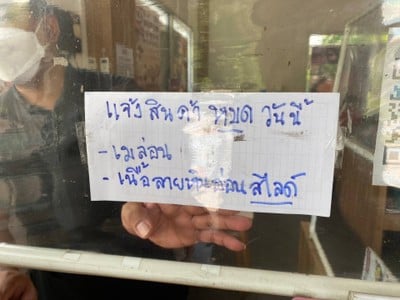 แจ้งสินค้าหมด วันนี้
- เมล่อน
- เนื้อลาย สไลด์